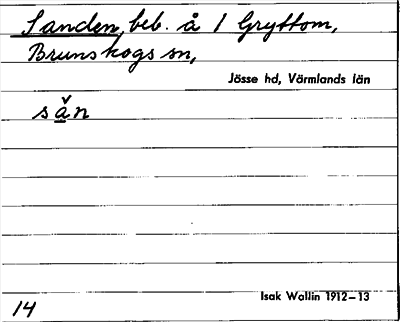 Sanden, beb. å 1 Gryttom,
Brunskogs sn,
Jösse hd, Värmlands län
sǎ̲n
Isak Wallin 1912–13
14